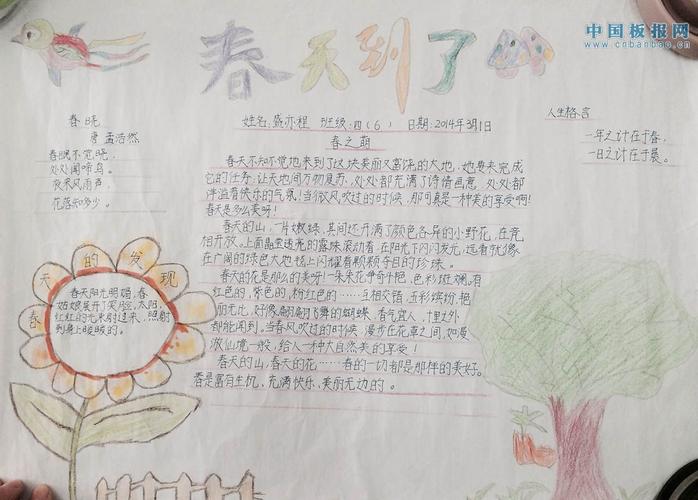 春天到了
中国板报网
www.cnbanbao.cn
春晓
唐 孟浩然
春眠不觉晓，
处处闻啼鸟。
夜来风雨声，
花落知多少。
姓名：盛亦程 班级：四（6） 日期：2014年3月1日
人生格言
一年之计在于春，
一日之计在于晨。
春之萌
春天不知不觉地来到了这块美丽又富饶的大地，她要来完成
它的任务，让天地间万物复苏，处处都充满了诗情画意，处处都
洋溢着快乐的气氛！当微风吹过的时候，那可真是一种美的享受啊！
春天是多么美呀！
春天的山，一片嫩绿，其间还开满了颜色各异的小野花，在竞
相开放。上面晶莹透亮的露珠滚动着，在阳光下闪闪发光，远看犹像
在广阔的绿色大地毯上闪耀着颗颗夺目的珍珠。
春天的花是那么的美呀！一朵朵花争奇斗艳，色彩斑斓。有
红色的，紫色的，粉红色的……互相交错，五彩缤纷，艳
丽无比，好像翩翩飞舞的蝴蝶，香气宜人，十里之外
都能闻到。当春风吹过的时候，漫步在花草之间，如漫
游仙境一般，给人一种大自然美的享受！
春天的山，春天的花……春的一切都是那样的美好。
春是富有生机、充满快乐、美丽无边的。
春天的发现
春天阳光明媚，春
姑娘展开了笑脸，太阳，
红红的光束射过来，照射
到身上暖暖的。